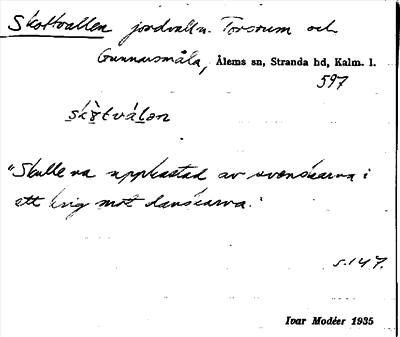 Skottvallen jordvall m. Torsrum och
Gunnarsmåla, Ålems sn, Stranda hd, Kalm. l.
597
skø̀tválən
"Skulle va uppkastad av svenskarna i
ett krig mot danskarna."
s. 147.
Ivar Modéer 1935